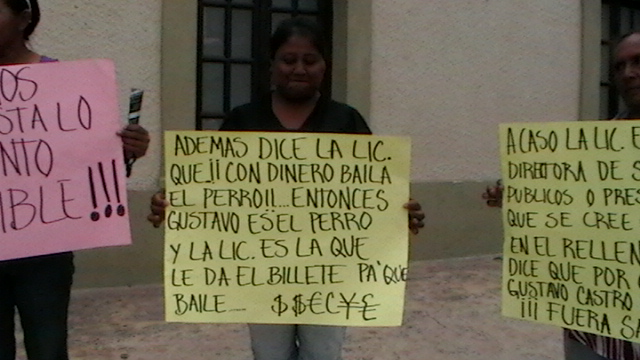 OS
STA LO
NTO
IBLE!!!
ADEMAS DICE LA LIC.
QUE¡¡ CON DINERO BAILA
EL PERRO!!...ENTONCES
GUSTAVO ES EL PERRO
Y LA LIC. ES LA QUE
LE DA EL BILLETE PA' QUE
BAILE.... $$€C¥£
ACASO LA LIC. E
DIRECTORA DE S
PUBLICOS O PRES
QUE SE CREE
EN EL RELLEN
DICE QUE POR
GUSTAVO CASTRO
¡¡¡ FUERA SA